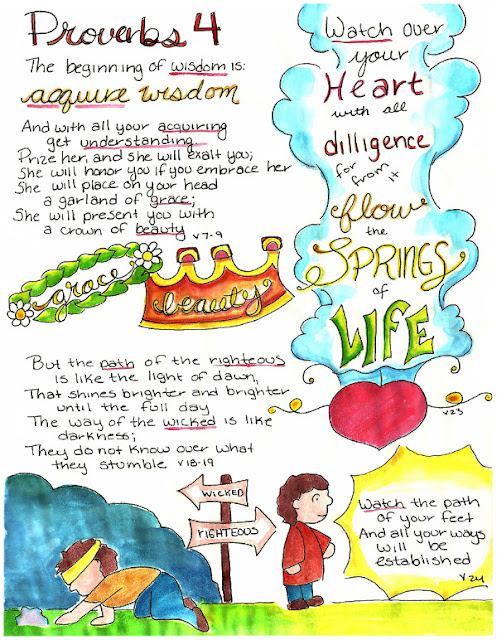 Proverbs 4
The beginning of wisdom is:
acquire wisdom
And with all your acquiring
get understanding.
Prize her, and she will exalt you;
She will honor you if you embrace her
She will place on your head
a garland of grace;
She will present you with
a crown of beauty v 7-9
grace
beauty
Watch over
your
Heart
with all
dilligence
for
from it
flow
the
SPRINGS
of
LIFE
v23
But the path of the righteous
is like the light of dawn,
That shines brighter and brighter
until the full day
The way of the wicked is like
darkness;
They do not know over what
they stumble v 18-19
WICKED
RIGHTEOUS
Watch the path
of your feet
And all your ways
will be
established
v 24